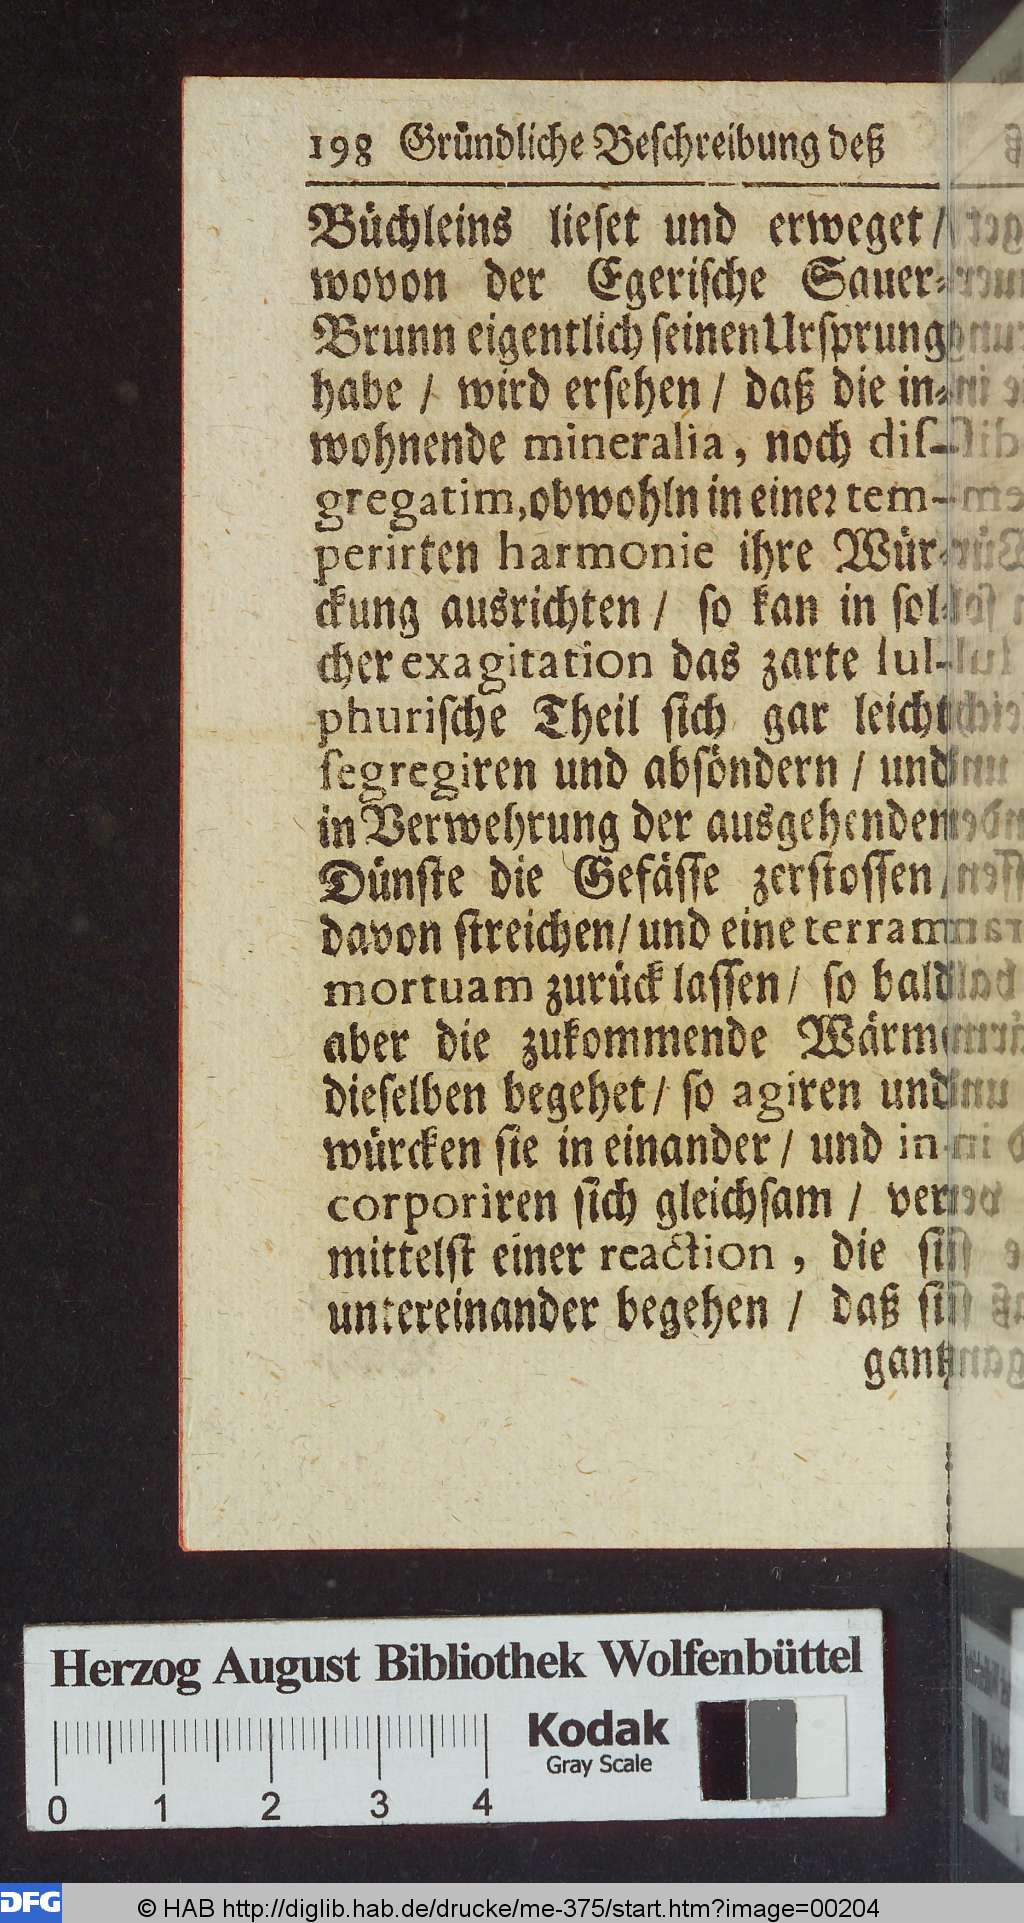 198 Gründliche Beschreibung deß
Büchleins lieset und erweget /
wovon der Egerische Sauer-
Brunn eigentlich seinen Ursprung
habe / wird ersehen / daß die in-
wohnende mineralia, noch dis-
gregatim, obwohln in einer tem-
perirten harmonie ihre Wür-
ckung ausrichten / so kan in sol-
cher exagitation das zarte sul-
phurische Theil sich gar leicht
segregiren und absöndern / und
in Verwehrung der ausgehenden
Dünste die Gefässe zerstossen /
davon streichen / und eine terram
mortuam zurück lassen / so bald
aber die zukommende Wärme
dieselben begehet / so agiren und
würcken sie in einander / und in-
corporiren sich gleichsam / ver-
mittelst einer reaction, die sie
untereinander begehen / daß sie
gantz
Herzog August Bibliothek Wolfenbüttel
Kodak
Gray Scale
0 1 2 3 4
DFG © HAB http://diglib.hab.de/drucke/me-375/start.htm?image=00204